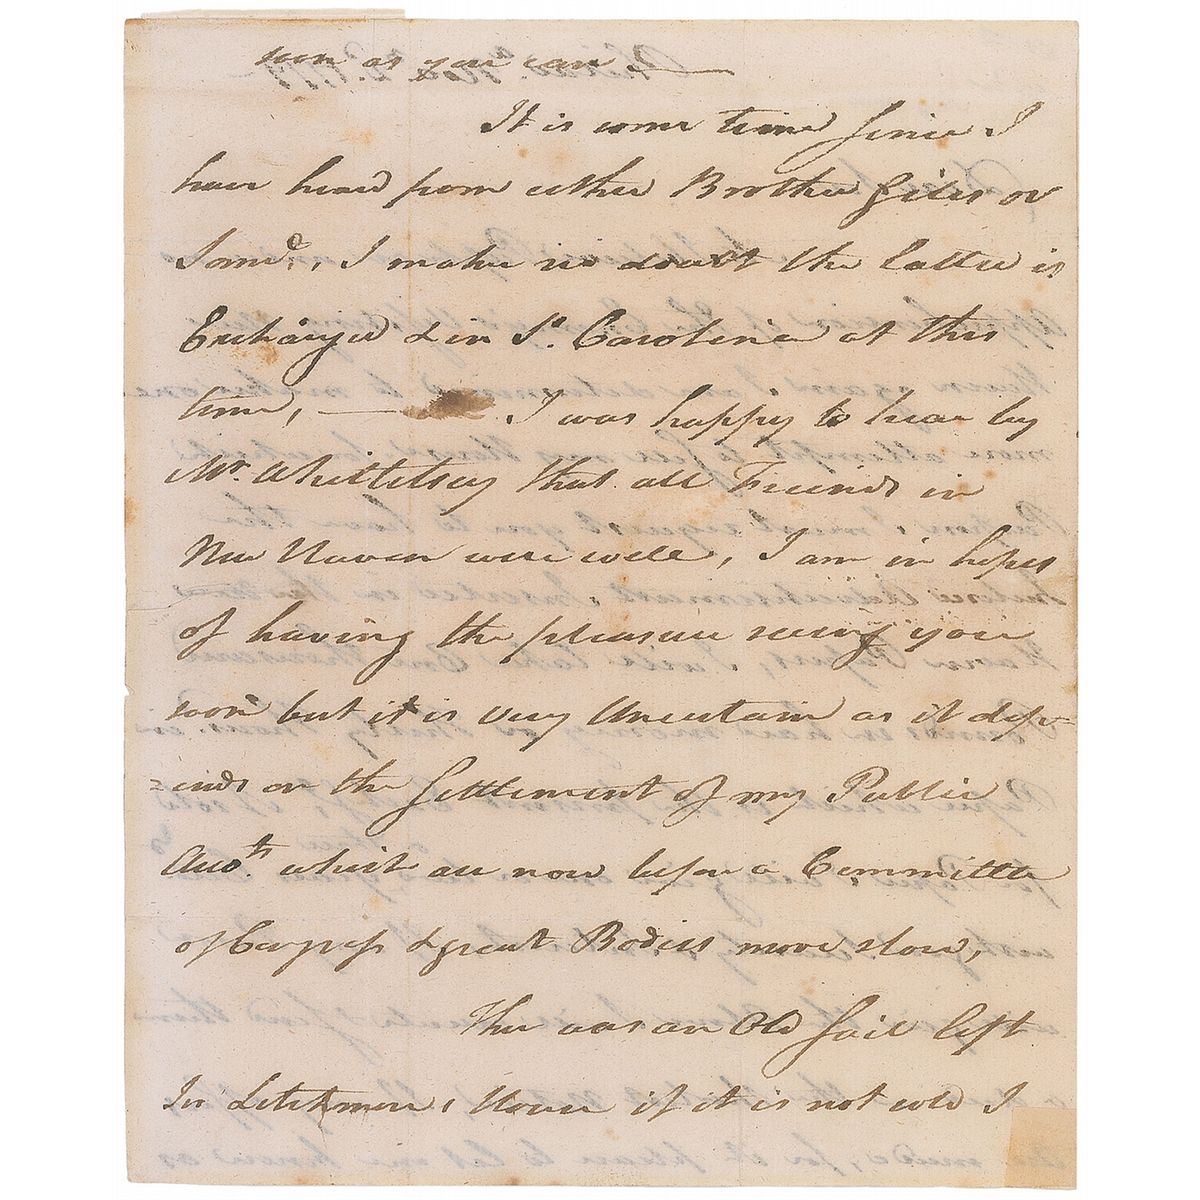 soon as you can. —
It is some time since I
have heard from either Brother Giles or
Saml., I make no doubt the latter is
Exchanged & in So. Carolina at this
time, — I was happy to hear by
Mr. Whittelsey that all Friends in
New Haven were well, I am in hopes
of having the pleasure seeing you
soon but it is very Uncertain as it dep-
=ends on the Settlement of my Public
Accots. which are now before a Committee
of Congress & great Bodies move slow,
Ther was an Old Sail left
In House if it is not sold I